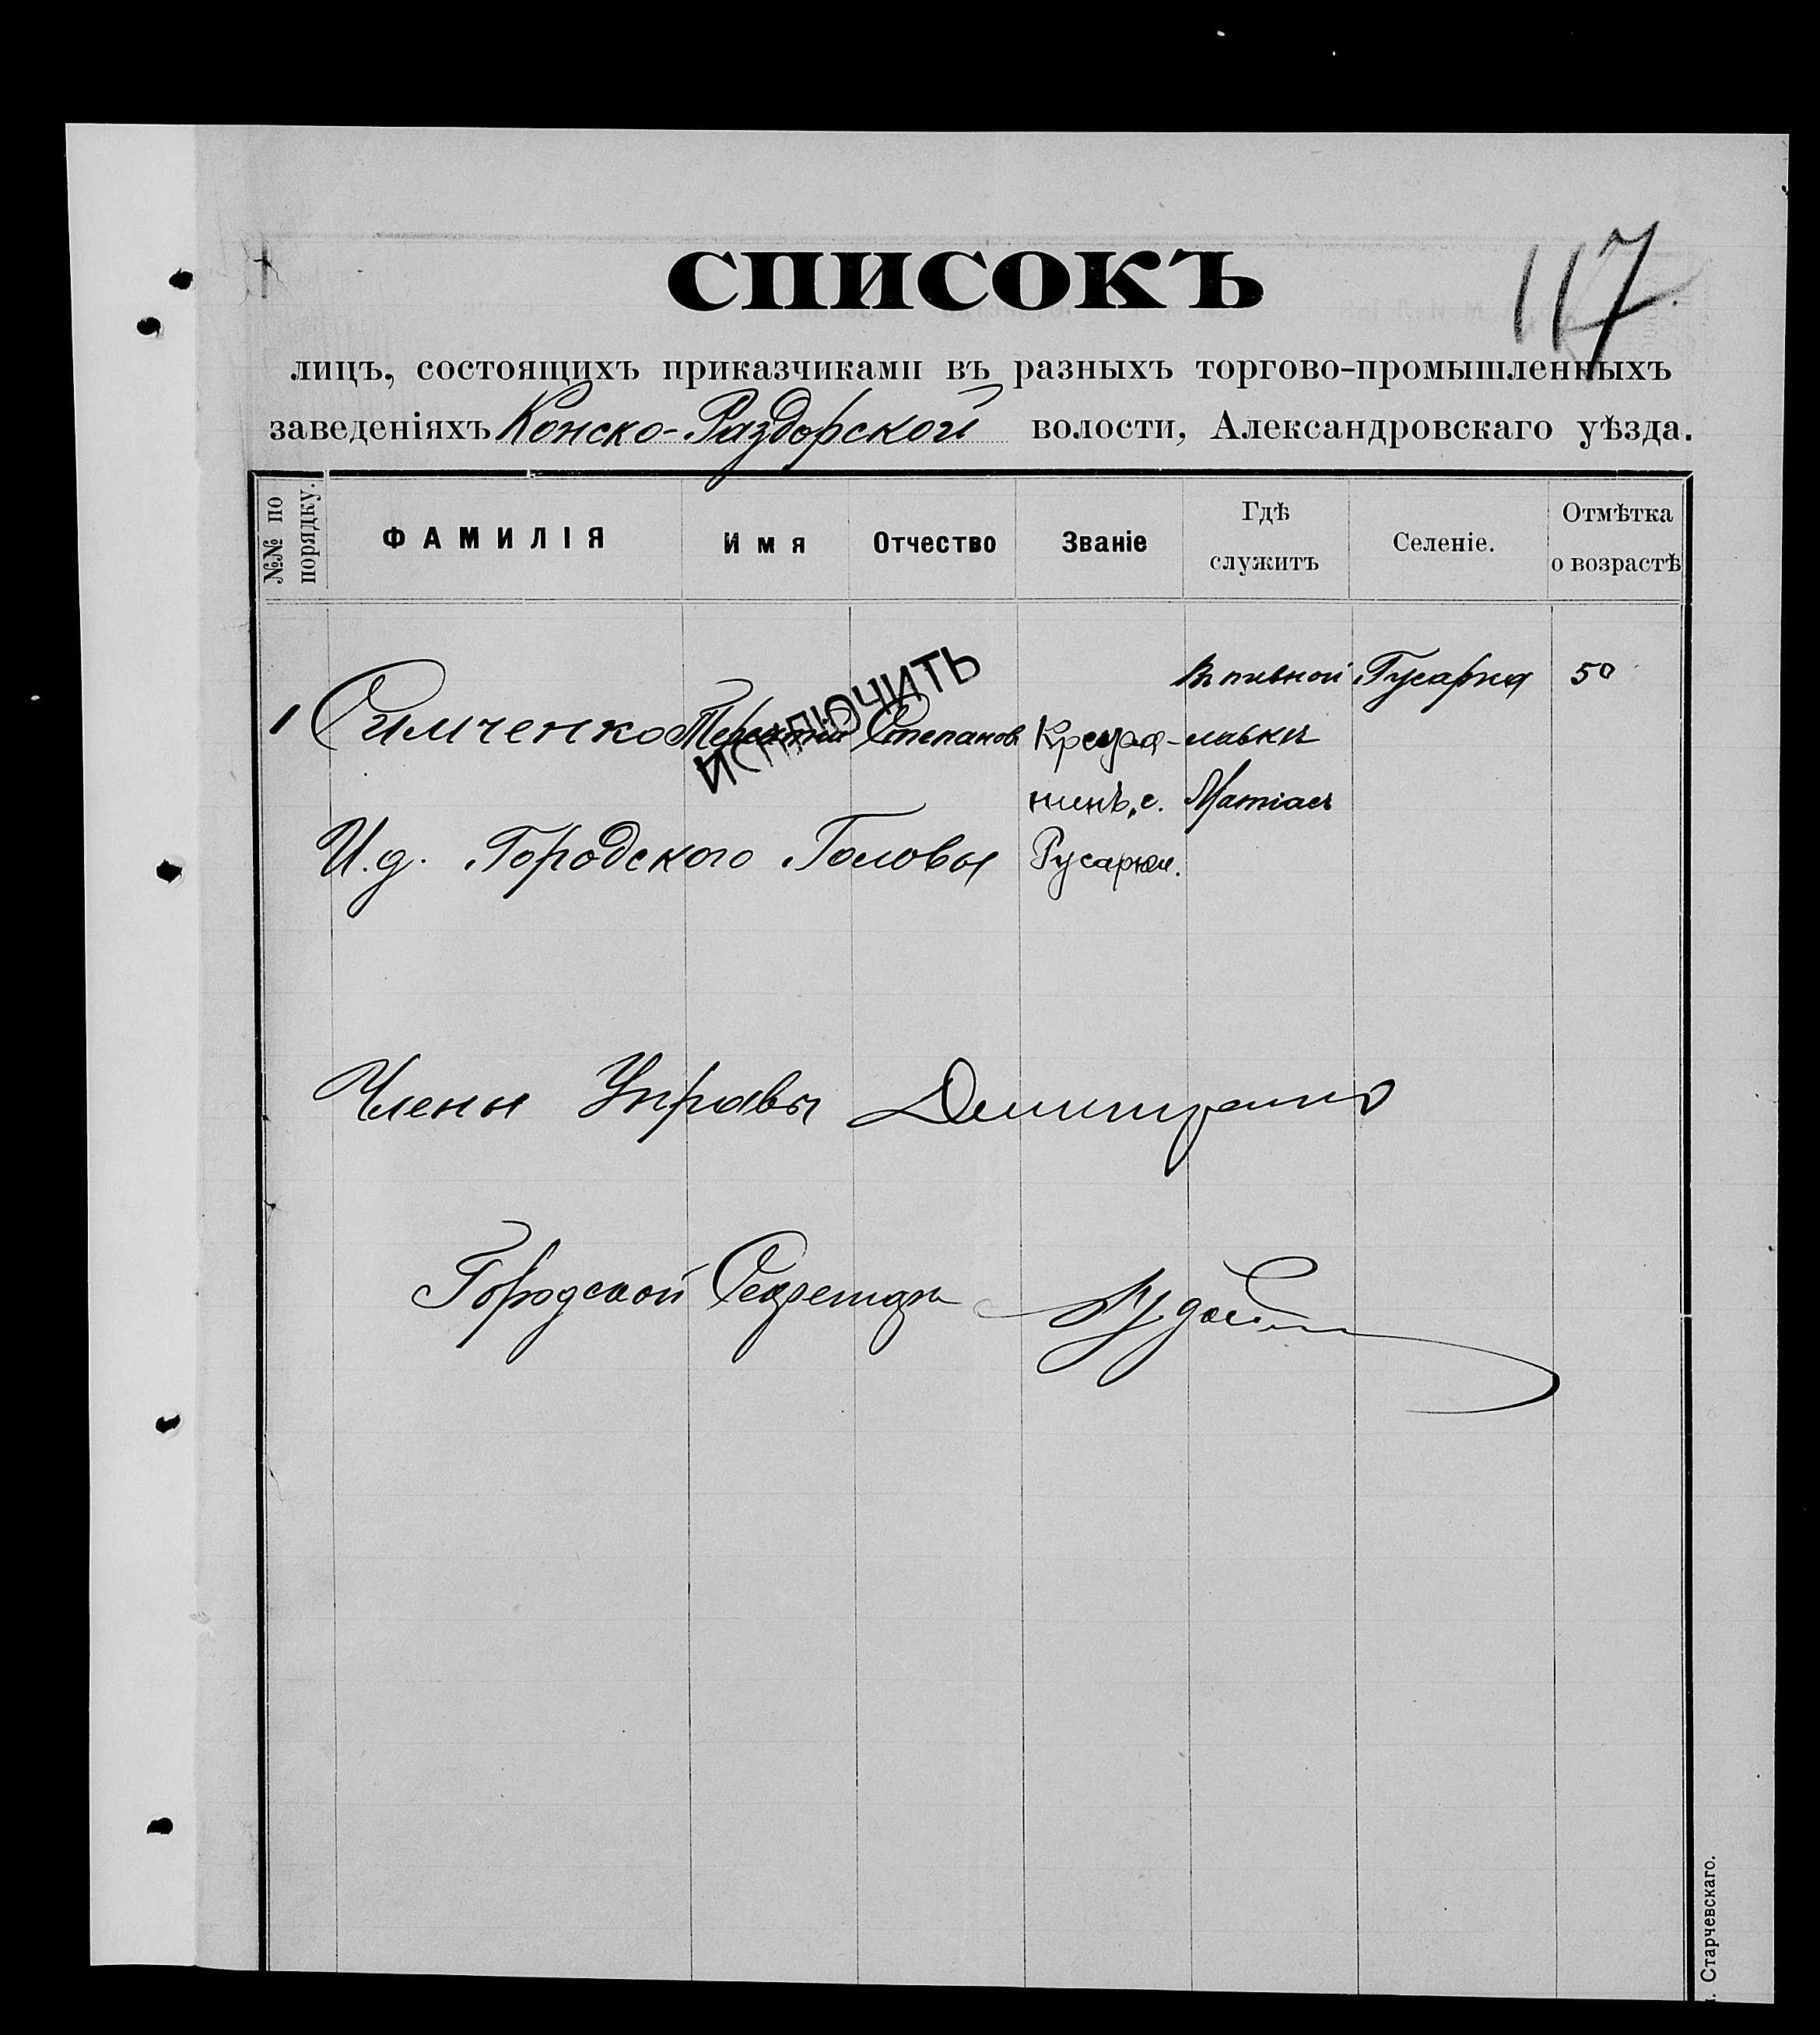 117
СПИСОКЪ
лицъ, состоящихъ приказчиками въ разныхъ торгово-промышленныхъ
заведеніяхъ Конско-Раздорской волости, Александровскаго уѣзда.
№№ по порядку.
ФАМИЛІЯ
Имя
Отчество
Званіе
Гдѣ служитъ
Селеніе.
Отмѣтка о возрастѣ
1 Симченко Терентій Степанов
ИСКЛЮЧИТЬ
Крестья-
нинъ, с.
Гусарки.
Въ пивной
лавкѣ
Матіасъ
Гусарка
50
И.д. Городского Головы
Члены Управы
Городской Секретарь
. Старчевскаго.